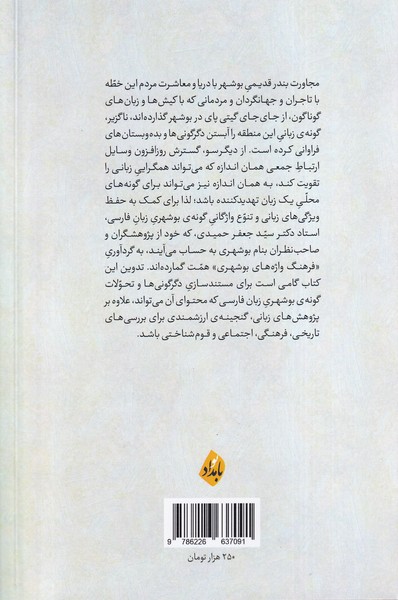 مجاورت بندر قدیمیِ بوشهر با دریا و معاشرت مردم این خطّه
با تاجران و جهانگردان و مردمانی که با کیش‌ها و زبان‌های
گوناگون، از جای‌جای گیتی پای در بوشهر گذارده‌اند، ناگزیر،
گونه‌ی زبانیِ این منطقه را آبستن دگرگونی‌ها و بده‌وبستان‌های
فراوانی کرده است. از دیگرسو، گسترش روزافزون وسایل
ارتباط جمعی همان اندازه که می‌تواند همگراییِ زبانی را
تقویت کند، به همان اندازه نیز می‌تواند برای گونه‌های
محلّیِ یک زبان تهدیدکننده باشد؛ لذا برای کمک به حفظ
ویژگی‌های زبانی و تنوّع واژگانیِ گونه‌ی بوشهریِ زبان فارسی،
استاد دکتر سیّد جعفر حمیدی، که خود از پژوهشگران و
صاحب‌نظران بنام بوشهری به حساب می‌آیند، به گردآوریِ
«فرهنگ واژه‌های بوشهری» همّت گمارده‌اند. تدوین این
کتاب گامی است برای مستندسازیِ دگرگونی‌ها و تحوّلات
گونه‌ی بوشهریِ زبان فارسی که محتوای آن می‌تواند، علاوه بر
پژوهش‌های زبانی، گنجینه‌ی ارزشمندی برای بررسی‌های
تاریخی، فرهنگی، اجتماعی و قوم‌شناختی باشد.
بامداد
9 786226 637091
۲۵۰ هزار تومان